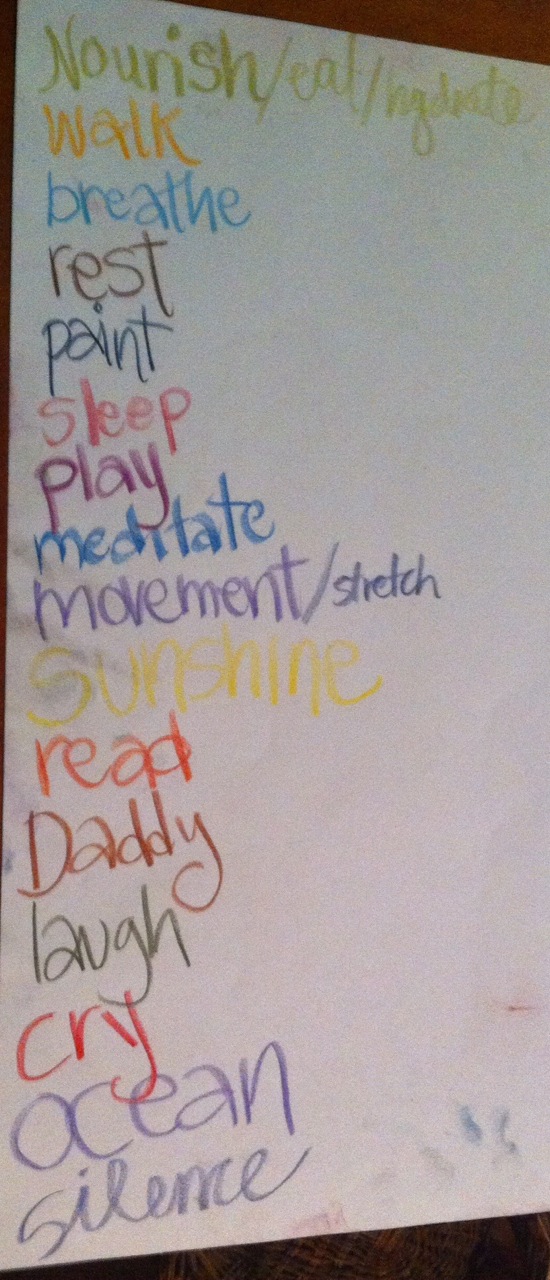 Nourish/eat/hydrate
walk
breathe
rest
paint
sleep
play
meditate
movement/stretch
sunshine
read
Daddy
laugh
cry
ocean
silence